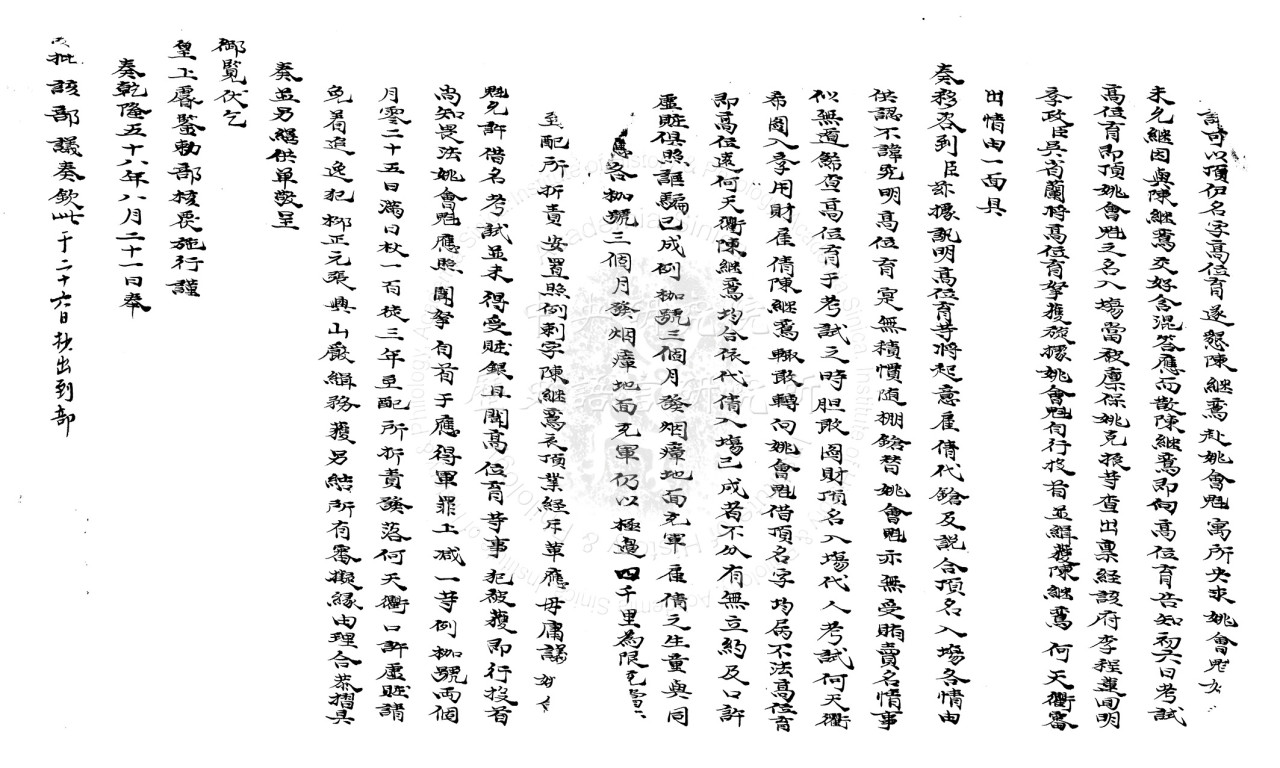 許可以頂伊名字高位育遂懇陳継蔫赴姚會魁寓所央求姚會魁
未允継因與陳継蔫交好含混答應而散陳継蔫即向高位育告知初六日考試
高位育即頂姚會魁之名入場當被廪保姚克振等查出禀經該府李程蓮回明
孝政臣吳省蘭将高位育拏獲旋據姚會魁自行投首並緝獲陳継蔫何天衢審
出情由一面具
奏移咨到臣茲據訊明高位育等将起意雇倩代鎗及説合頂名入場各情由
供認不諱究明高位育寔無積慣随棚鎗替姚會魁亦無受賄賣名情事
似無遁餙查高位育于考試之時胆敢圖財頂名入場代人考試何天衢
希圖入孝用財雇倩陳継蔫輙敢轉向姚會魁借頂名字均属不法高位育
即高位遠何天衢陳継蔫均合依代倩入場已成者不分有無立約及口許
虚賍俱照誆騙已成例枷號三個月發烟瘴地面充軍雇倩之生童與同
應各枷號三個月發烟瘴地面充軍仍以極邉四千里為限
至配所折責安置照例刺字陳継蔫衣頂業經斥革應毋庸議
魁允許借名考試並未得受賍銀且聞高位育等事犯被獲即行投首
尚知畏法姚會魁應照聞拏自首于應得軍罪上減一等例枷號兩個
月零二十五日滿日杖一百徒三年至配所折責發落何天衢口許虚賍請
免着追逸犯柳正元張典山嚴緝務獲另結所有審擬縁由理合恭摺具
奏並另繕供單敬呈
御覧伏乞
皇上睿鑒勅部核覆施行謹
奏乾隆五十八年八月二十一日奉
硃批該部議奏欽此于二十六日抄出到部
中央研究院
歷史語言研究所